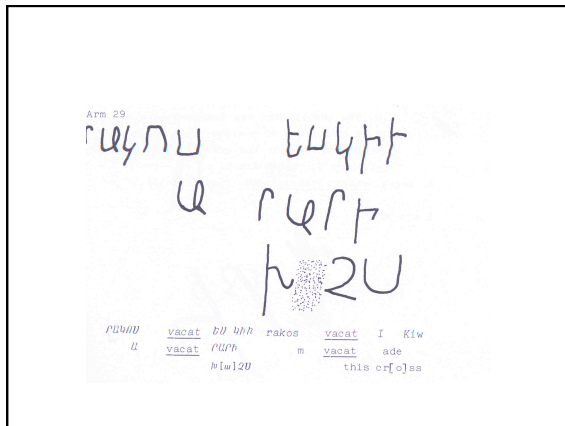 Arm 29
ՐԱԿՈՍ ԵՍԿԻՒ
Ա ՐԱՐԻ
Խ ՉՍ
ՐԱԿՈՍ vacat ԵՍ ԿԻՒ rakos vacat I Kiw
Ա vacat ՐԱՐԻ m vacat ade
Խ[ա]ՉՍ this cr[o]ss